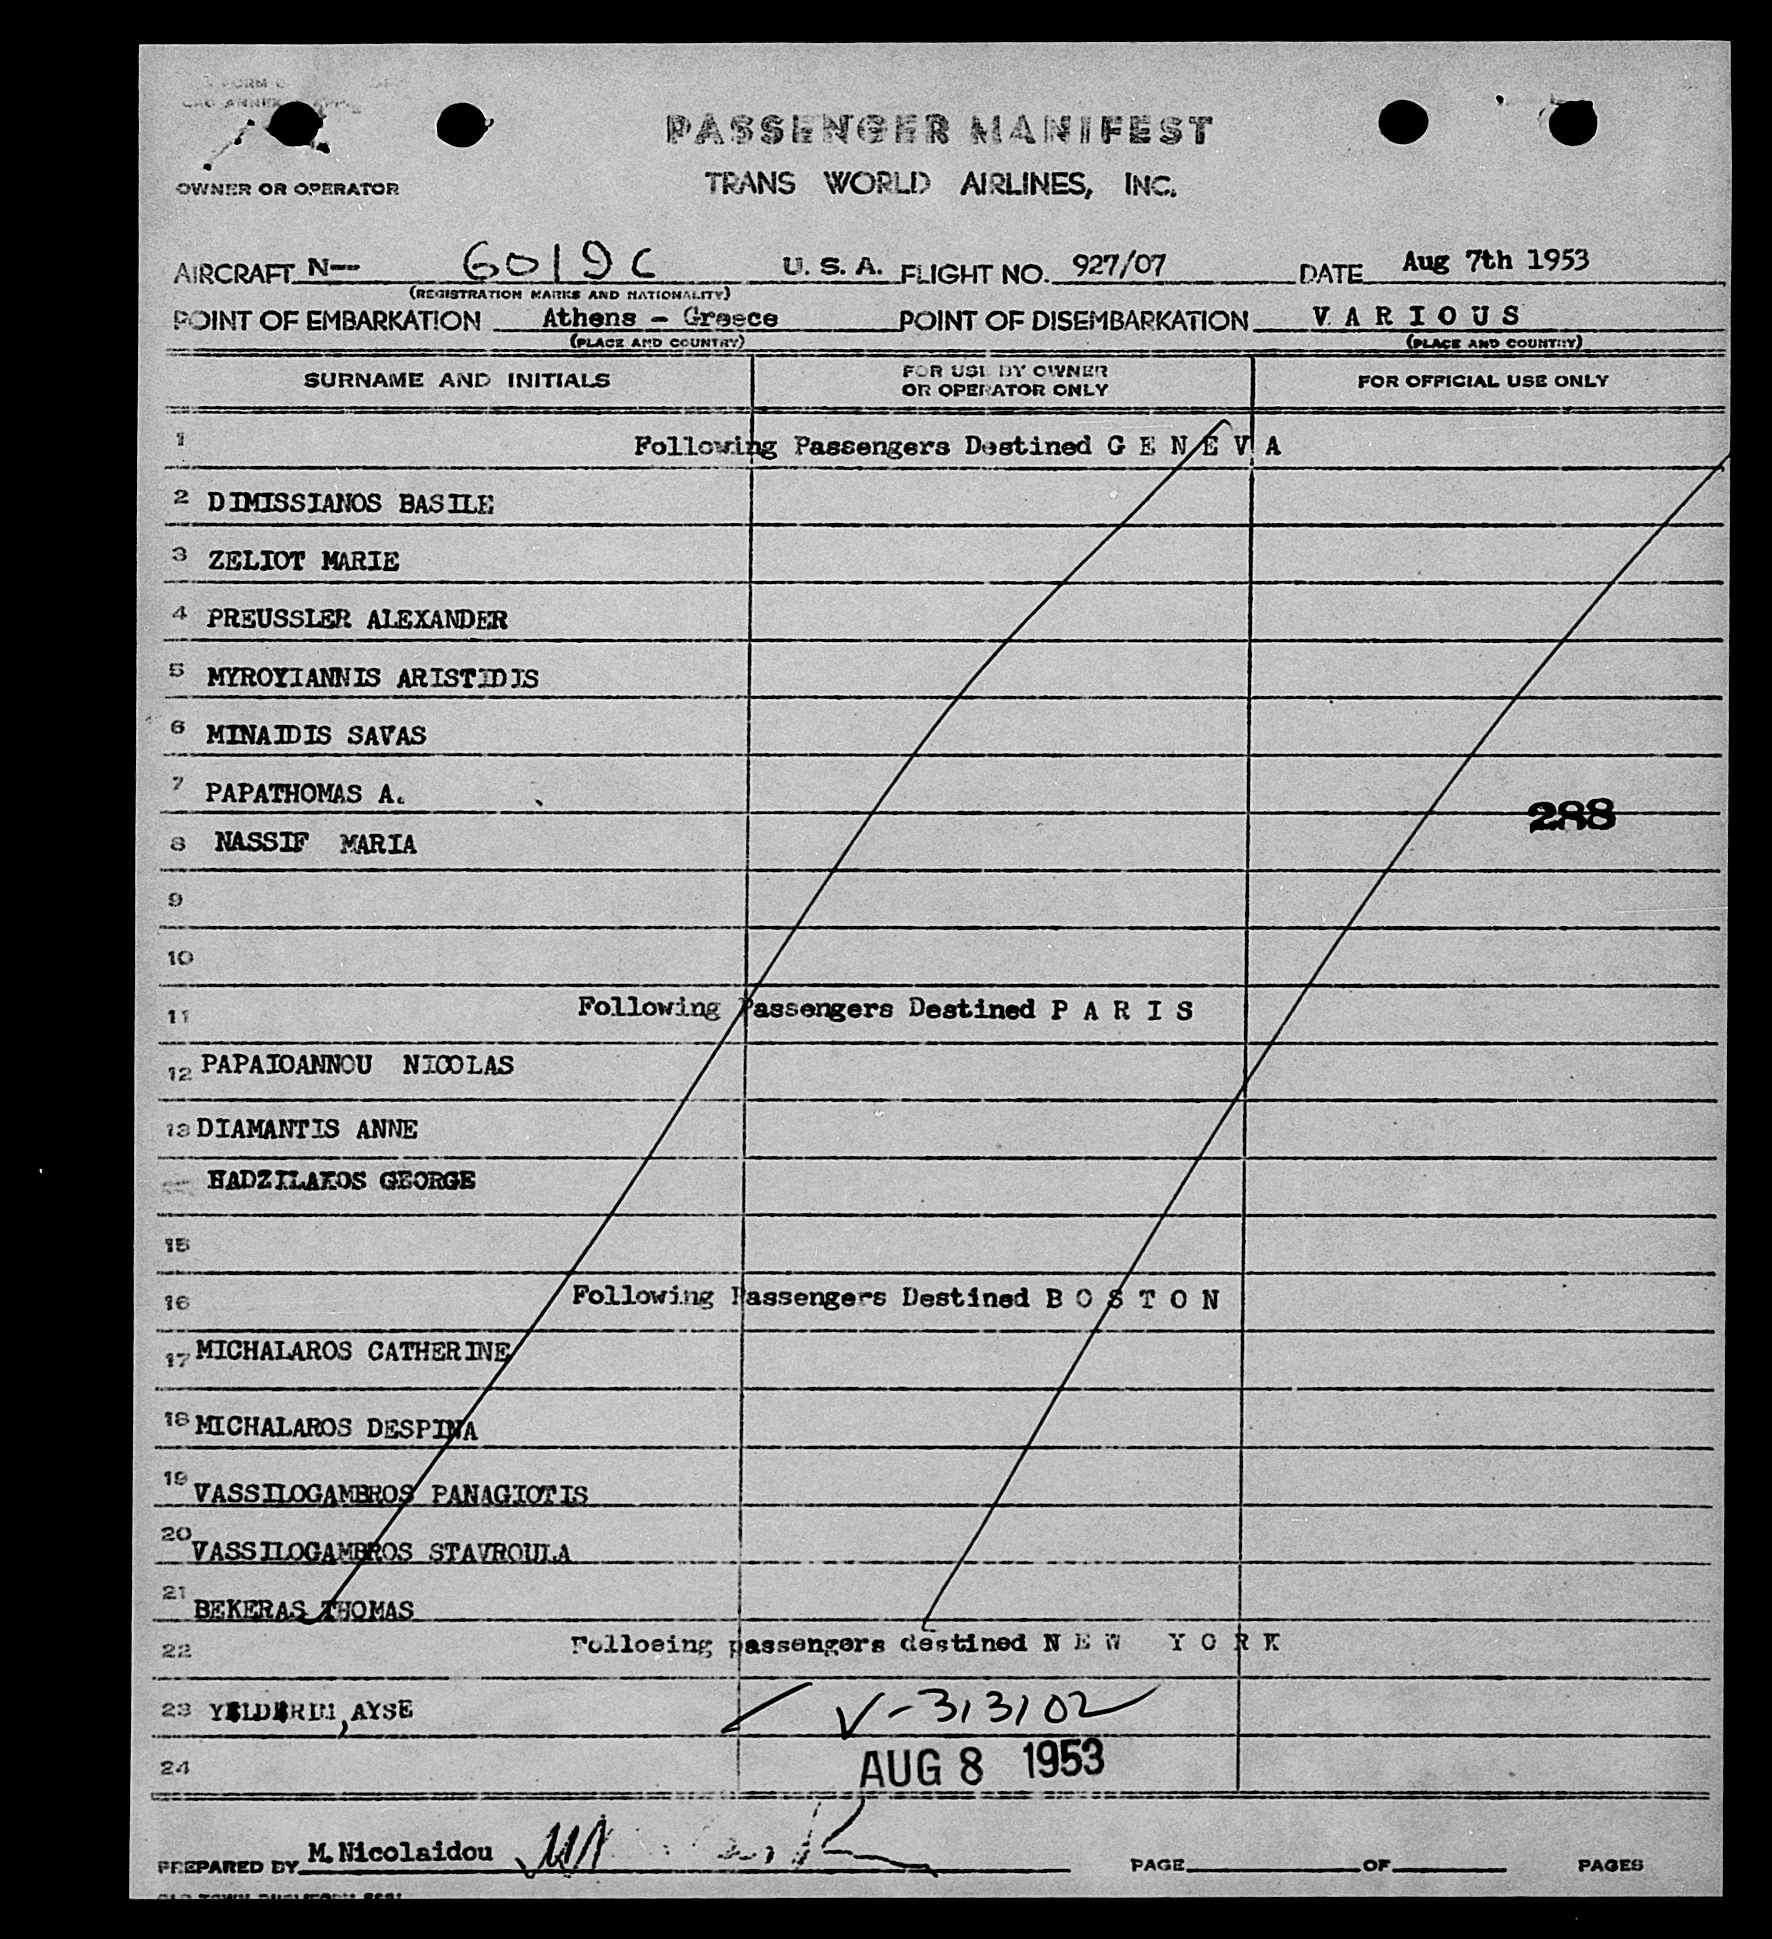 FORM
ANNEX
PASSENGER MANIFEST
TRANS WORLD AIRLINES, INC.
OWNER OR OPERATOR
AIRCRAFT N-- 6019C U. S. A. FLIGHT NO. 927/07 DATE Aug 7th 1953
(REGISTRATION MARKS AND NATIONALITY)
POINT OF EMBARKATION Athens - Greece POINT OF DISEMBARKATION V A R I O U S
(PLACE AND COUNTRY) (PLACE AND COUNTRY)
SURNAME AND INITIALS FOR USE BY OWNER OR OPERATOR ONLY FOR OFFICIAL USE ONLY
1 Following Passengers Destined G E N E V A
2 DIMISSIANOS BASILE
3 ZELIOT MARIE
4 PREUSSLER ALEXANDER
5 MYROYIANNIS ARISTIDIS
6 MINAIDIS SAVAS
7 PAPATHOMAS A.
288
8 NASSIF MARIA
9
10
11 Following Passengers Destined P A R I S
12 PAPAIOANNOU NICOLAS
13 DIAMANTIS ANNE
HADZILAKOS GEORGE
15
16 Following Passengers Destined B O S T O N
17 MICHALAROS CATHERINE
18 MICHALAROS DESPINA
19 VASSILOGAMBROS PANAGIOTIS
20 VASSILOGAMBROS STAVROULA
21 BEKERAS THOMAS
22 Folloeing passengers destined N E W Y O R K
23 YILDIRIM, AYSE V-313102
24 AUG 8 1953
PREPARED BY M. Nicolaidou PAGE OF PAGES